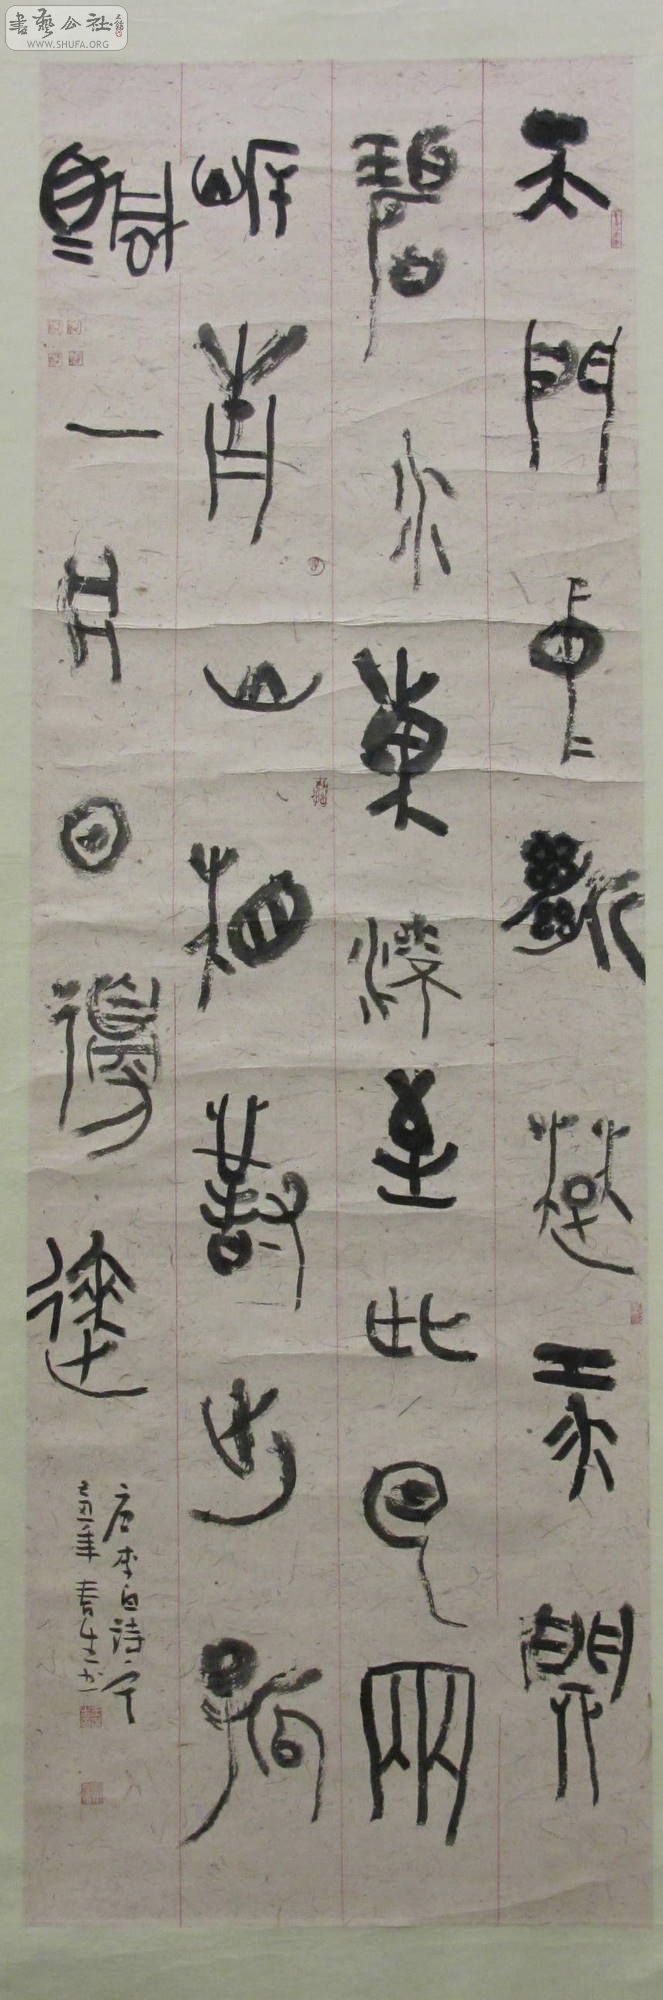 書藝公社
WWW.SHUFA.ORG
天門中斷楚江開
碧水東流至此回兩
岸青山相對出孤
帆一片日邊來
唐李白詩
年春生书